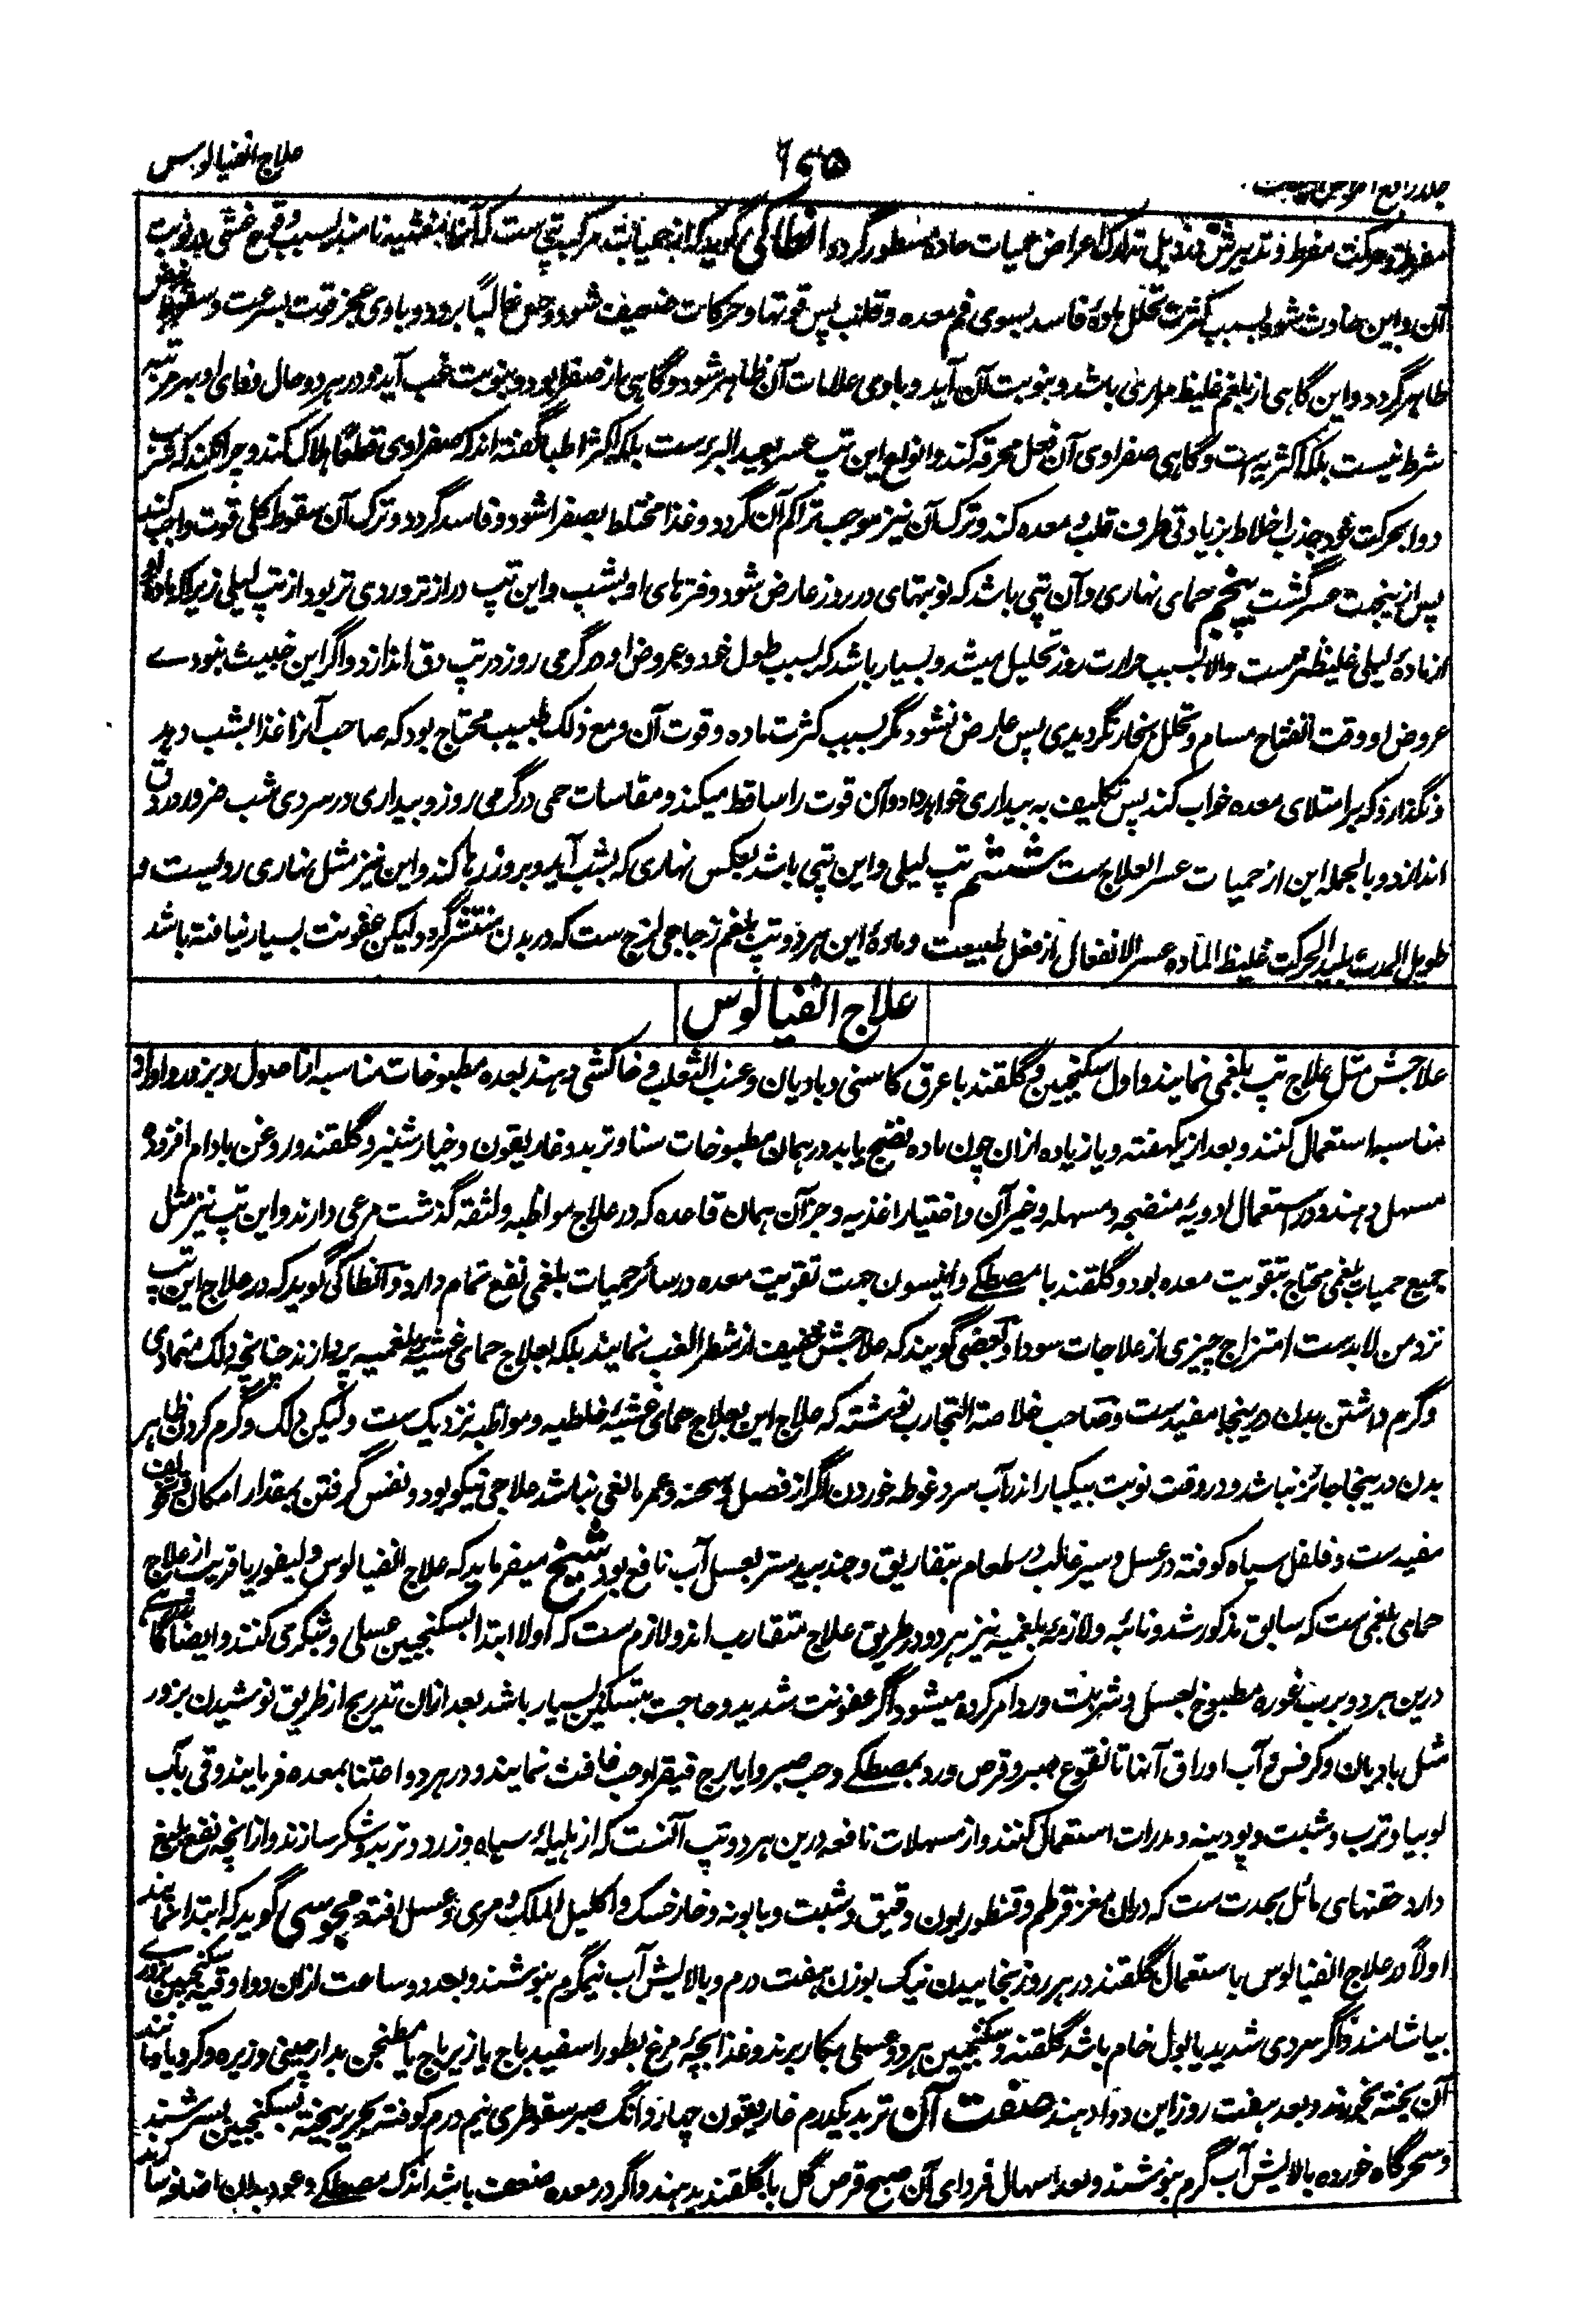 علاج انفیالوس
۶۵۵
مفرط و حرکت مفرط و تدبیرش در ذیل تدارک اعراض حمیات حاده مسطور گردد انطاکی گوید که از حمیات مرکبه تپی ست که آنرا غشیه نامند بسبب وقوع غشی در نوبت
آن و این حادث شود بسبب کثرت تحلل ماده فاسد بسوی فم معده و قلب پس قوتها و حرکات ضعیف شود و حس غالباً برود و با وی عجز قوت بسرعت و سقوط نبض
ظاهر گردد و این گاهی از بلغم غلیظ باشد و بنوبت آن آید و با وی علامات آن ظاهر شود و گاهی از صفرا بود و بنوبت غب آید و در هر دو حال
شرط نیست بلکه اکثریه است و گاهی صفراوی آن فعل محرقه کند و انواع این تپ عسر بعید البرء ست بلکه اکثر اطبا گفته اند که صفراوی قطعاً هلاک کند و چرا نکند که
دوا بحرکت خود جذب اخلاط بزیادتی طرف قلب و معده کند و ترک آن نیز موجب تراکم آن گردد و غذا مختلط بصفرا شود و فاسد گردد و ترک آن سقوط کلی قوت واجب کند
پس ازینجهت عسر گشت پنجم حمای نهاری و آن تپی باشد که نوبتهای در روز عارض شود و فترهای او بشب و این تپ دراز تر و ردی تر بود از تپ لیلی زیرا که ماده او
از ماده لیلی غلیظ تر ست والا بسبب حرارت روز تحلیل میشد و بسیار باشد که بسبب طول خود و عروض او در گرمی روز در تپ دق اندازد و اگر این خبیث نبودے
عروض او وقت انفتاح مسام و تحلل بخار نگردیدی پس عارض نشود مگر بسبب کثرت ماده و قوت آن و مع ذلک طبیب محتاج بود که صاحب آنرا غذا بشب دهد
و نگذارد که بر امتلای معده خواب کند پس تکلیف به بیداری خواهد داد و آن قوت را ساقط میکند و مقاسات حمی در گرمی روز و بیداری در سردی شب ضرور در دق
اندازد و بالجمله این از حمیات عسر العلاج ست ششم تپ لیلی و این تپی باشد بعکس نهاری که بشب آید و بروز رها کند و این نیز مثل نهاری ردیست و
طویل المدت بلید الحرکت غلیظ الماده عسر الانفعال از فعل طبیعت و ماده این هر دو تپ بلغم زجاجی لزج ست که در بدن منتشر گردد و لیکن عفونت بسیار نیافته باشد
علاج انفیالوس
علاجش مثل علاج تپ بلغمی نمایند و اول سکنجبین و گلقند با عرق کاسنی و بادیان و عنب الثعلب و خاکشی دهند بعده مطبوخات مناسبه از اصول و بزور و اوراق
مناسبه استعمال کنند و بعد از یکهفته و یا زیاده ازان چون ماده نضج یابد در همان مطبوخات سنا و تربد و غاریقون و خیارشنبر و گلقند و روغن بادام افزوده
مسهل دهند و در استعمال ادویه منضجه و مسهله و غیر آن و اختیار اغذیه و جز آن همان قاعده که در علاج مواظبه و لثقه گذشت مرعی دارند و این تپ نیز مثل
جمیع حمیات بلغمی محتاج بتقویت معده بود و گلقند با مصطگے و انیسون جهت تقویت معده در سائر حمیات بلغمی نفع تمام دارد و انطاکی گوید که در علاج این تپ
نزد من لابد ست امتزاج چیزی از علاجات سودا و بعضی گویند که علاجش خفیف از شطر الغب نمایند بلکه بعلاج حمای غشیه بلغمیه پردازند چنانچه دلک متمادی
و گرم داشتن بدن درینجا مفید ست و صاحب خلاصة التجارب نوشته که علاج این بعلاج حمای غشیه خلطیه و مواظبه نزدیک ست ولیکن دلک و گرم کردن ظاهر
بدن درینجا جائز نباشد و در وقت نوبت بیکبار اندر آب سرد غوطه خوردن اگر از فصل و سحنه و عمر مانعی نباشد علاجی نیکو بود و نفس گرفتن بمقدار امکان
مفید ست و فلفل سیاه کوفته در عسل و سیر غالب در طعام بتفاریق و جند بیدستر بعسل آب نافع بود شیخ میفرماید که علاج انفیالوس و لیفوریا قریب از علاج
حمای بلغمی ست که سابق مذکور شد و نائبه و لازمه بلغمیه نیز هر دو در طریق علاج متقارب اند و لازم ست که اولا ابتدا بسکنجبین عسلی و شکری کنند و ایضاً گاهی
درین هر دو برب غوره مطبوخ بعسل و شربت ورد امر کرده میشود اگر عفونت شدید و حاجت بتسکین بسیار باشد بعد ازان تدریج از طریق نوشیدن بزور
مثل بادیان و کرفس و آب اوراق آنها تا نقوع صبر و قرص ورد بمصطگے و حب صبر و ایارج فیقرا و حب غافث نمایند و در هر دو اعتنا بمعده فرمایند و قی بآب
لوبیا و ترب و شبت و پودینه و مدرات استعمال کنند و از مسهلات نافعه درین هر دو تپ آنست که از هلیله سیاه و زرد و تربد و شکر سازند و از انچه نفع بلیغ
دارد حقنهای مائل بحدت ست که دران مغز قرطم و قنطوریون دقیق و شبت و بابونه و خار خسک و اکلیل الملک و مری و عسل افتد مجوسی گوید که ابتدا نمایند
اولاً در علاج انفیالوس باستعمال گلقند در هر روز بخاییدن نیک بوزن هفت درم و بالایش آب نیمگرم بنوشند و بعد دو ساعت ازان دو اوقیه سکنجبین بزوری
بیاشامند و اگر سردی شدید یا بول خام باشد گلقند و سکنجبین هر دو عسلی بکار برند و غذا بچه مرغ بطور اسفیدباج یا زیرباج یا مطنجن بدارچینی و زیره و کرویا و مانند
آن پخته بخورند و بعد هفت روز این دوا دهند صفت آن تربد یکدرم غاریقون چهار دانگ صبر سقوطری نیم درم کوفته بحریر بیخته بسکنجبین بسرشند
و سحرگاه خورده بالایش آب گرم بنوشند و بعد اسهال فردای آن صبح قرص گل با گلقند بدهند و اگر در معده ضعف باشد اندک مصطگے و عود بدان اضافه سازند